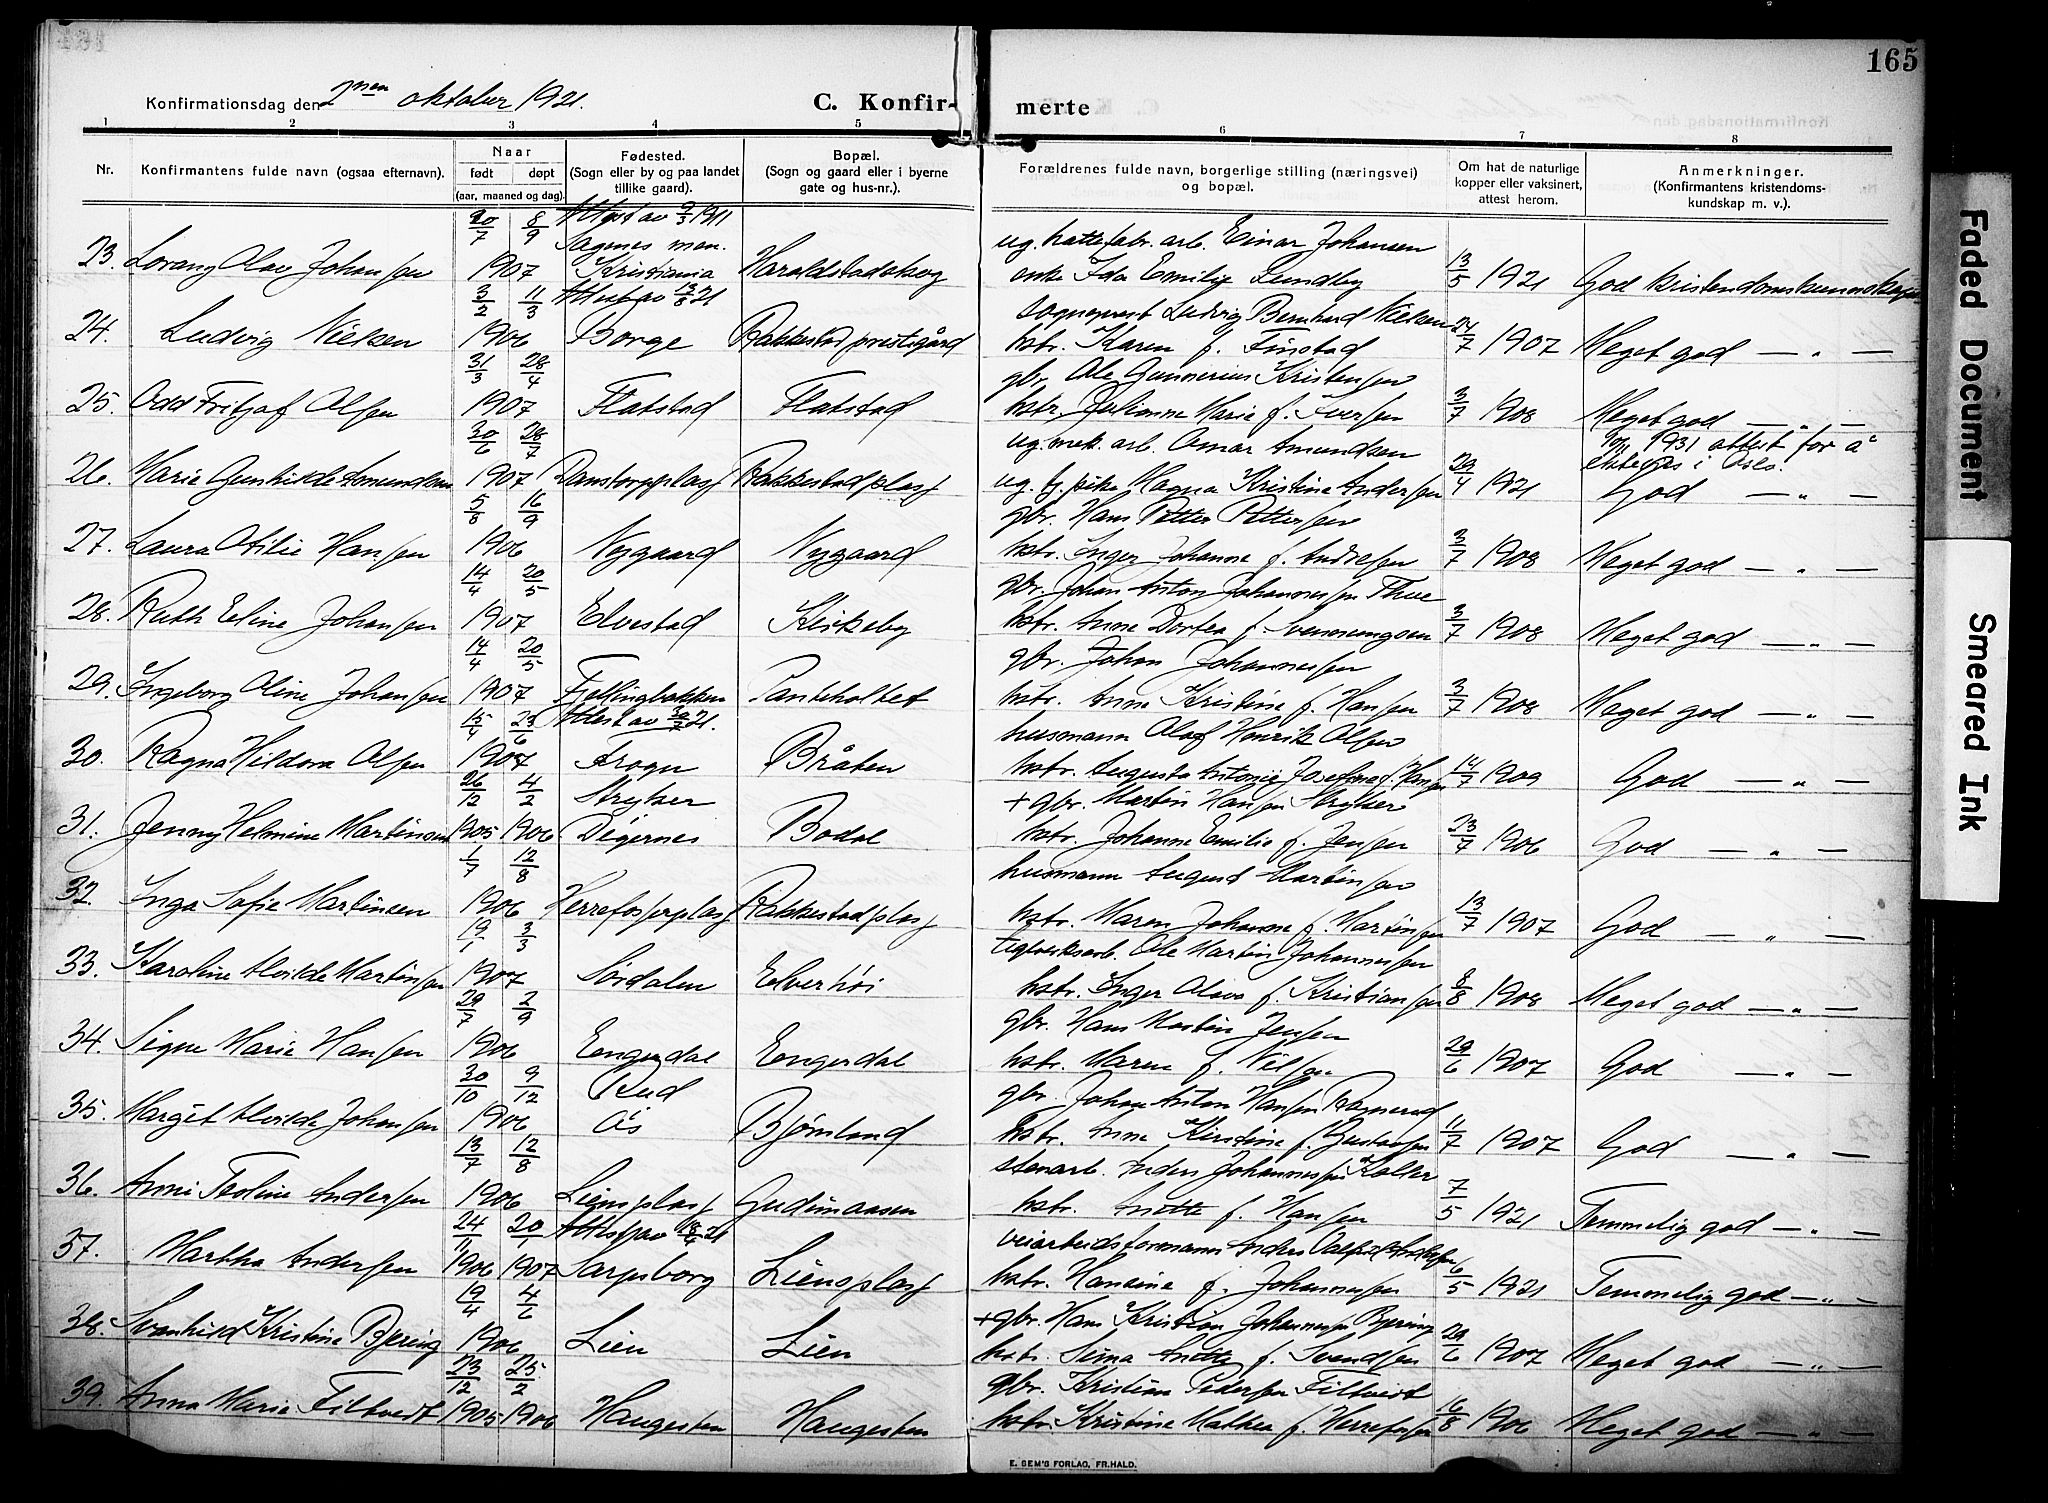 165
Konfirmationsdag den 2nen oktober 1921.
C. Konfir- merte
1 2 3 4 5 6 7 8
Nr.
Konfirmantens fulde navn (ogsaa efternavn).
Naar
født døpt
(aar, maaned og dag).
Fødested.
(Sogn eller by og paa landet
tillike gaard).
Bopæl.
(Sogn og gaard eller i byerne
gate og hus-nr.).
Forældrenes fulde navn, borgerlige stilling (næringsvei)
og bopæl.
Om hat de naturlige
kopper eller vaksinert,
attest herom.
Anmerkninger.
(Konfirmantens kristendoms-
kundskap m. v.).
20/7 8/9 Attest av 9/3 1911
Sagenes men. ug. hattefabr. arb. Einar Johansen
23. Lorang Olav Johansen 1907 Kristiania Haraldstadskog enke Ida Emilie Lundby 13/5 1921 God kristendomskunnskap
3/2 11/3 Attest av 13/8 21 sogneprest Ludvig Bernhard Nielsen
24. Ludvig Nielsen 1906 Borge Rakkestad prestegård hstr. Karen f. Finstad 24/7 1907 Meget god — „ —
31/3 28/4 gbr. Ole Gunnerius Kristensen
25. Odd Fritjof Olsen 1907 Flatstad Flatstad hstr. Julianne Marie f. Iversen 3/7 1908 Meget god — „ —
30/6 28/7 ug. mek. arb. Omar Amundsen 1931 attest for å
ektevies i Oslo.
26. Marie Gunhilde Amundsen 1907 Danstorpplass Rakkestadplass ug. tj. pike Magna Kristine Andersen 29/4 1921 God — „ —
5/8 16/9 gbr. Hans Petter Pettersen
27. Laura Otilie Hansen 1906 Nygaard Nygaard hstr. Inger Johanne f. Andresen 3/7 1908 Meget god — „ —
14/4 20/5 gbr. Johan Anton Johannessen Thue
28. Ruth Eline Johansen 1907 Elvestad Kirkeby hstr. Anne Dortea f. Svenningsen 3/7 1908 Meget god — „ —
14/4 20/5 gbr. Johan Johannessen
29. Ingeborg Oline Johansen 1907 Fjellingbakken Panteholtet hstr. Anne Kristine f. Hansen 3/7 1908 Meget god — „ —
15/4 23/6 Attest av 30/7 21. husmann Olaf Henrik Olsen
30. Ragna Hildora Olsen 1907 Frogn Bråten hstr. Augusta Antonie Josefine f. Hansen 14/7 1909 God — „ —
26/12 4/2 Stryker + gbr. Martin Hansen Stryker
31. Jenny Helmine Martinsen 1905 1906 Degernes Bodal hstr. Johanne Emilie f. Jensen 23/7 1906 God — „ —
1/7 12/8 husmann August Martinsen
32. Inga Sofie Martinsen 1906 Herrefosserplass Rakkestadplass hstr. Maren Johanne f. Martinsen 13/7 1907 God — „ —
19/1 3/3 teglverksarb. Ole Martin Johannessen
33. Karoline Alvilde Martinsen 1907 Sørdalen Elverhøi hstr. Inger Olava f. Kristiansen 8/8 1908 Meget god — „ —
29/7 2/9 gbr. Hans Martin Jensen
34. Signe Marie Hansen 1906 Engerdal Engerdal hstr. Maren f. Nilsen 29/6 1907 God — „ —
30/10 9/12 Rud gbr. Johan Anton Hansen
35. Marget Alvilde Johansen 1906 Ås Bjørnland hstr. Anne Kirstine f. Gustavsen 11/7 1907 God — „ —
13/7 12/8 stenarb. Anders Johannessen
36. Anni Teoline Andersen 1906 Liensplass Gudimaasen hstr. Anette f. Hansen 7/5 1921 Temmelig god — „ —
24/11 20/1 Attest av 18/4 21 veiarbeidsformann Anders
37. Martha Andersen 1906 1907 Sarpsborg Liensplass hstr. Hansine f. Johannessen 6/5 1921 Temmelig god — „ —
19/4 4/6 + gbr. Hans Kristian Johannessen Bjering
38. Svanhild Kristine Bjering 1906 Lien Lien hstr. Sina Anette f. Svendsen 29/6 1907 Meget god — „ —
23/12 25/2 gbr. Kristian Pedersen Filtvedt
39. Anna Marie Filtvedt 1905 1906 Haugesten Haugesten hstr. Kristine Mathea f. Herrefosser 16/8 1906 Meget god — „ —
E. SEM'S FORLAG, FR.HALD.
Faded Document
Smeared Ink